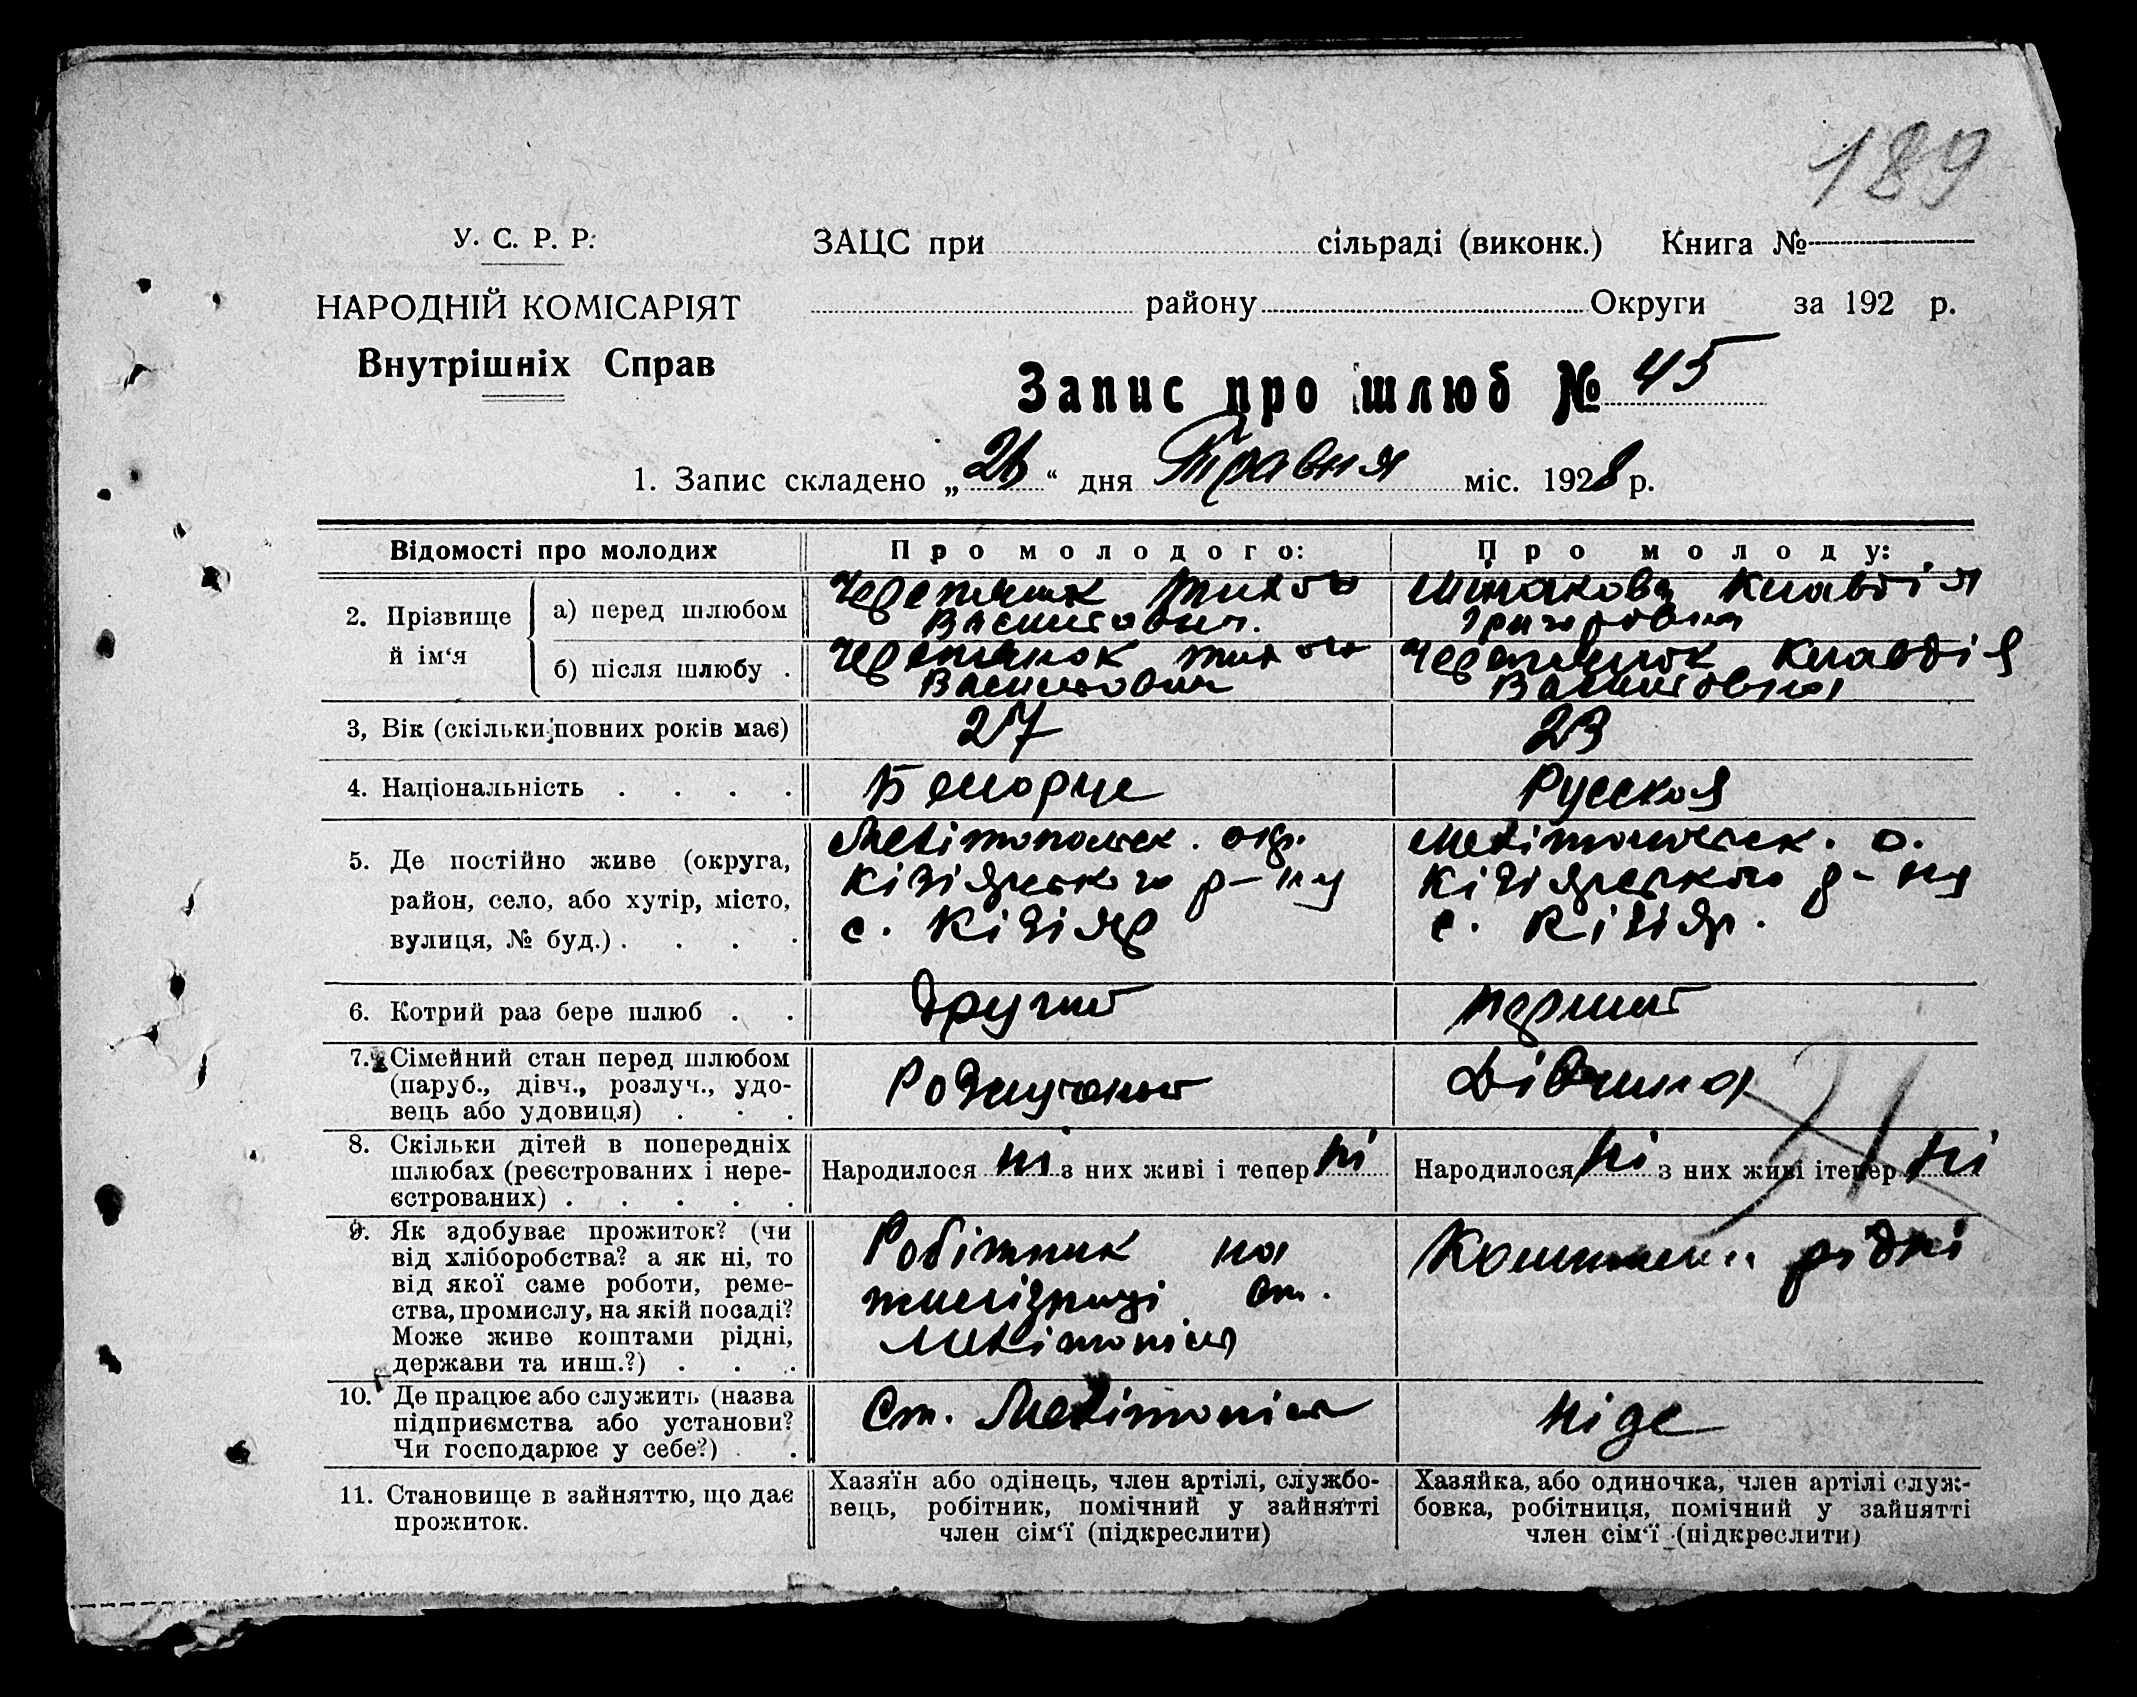 189
У. С. Р. Р.
НАРОДНІЙ КОМІСАРІЯТ
Внутрішніх Справ
ЗАЦС при сільраді (виконк.) Книга №
району Округи за 192 р.
Запис про шлюб № 45
1. Запис складено „26“ дня Травня міс. 1928 р.
Відомості про молодих
Про молодого:
Про молоду:
2. Прізвище й ім‘я
а) перед шлюбом
Тихон
Клавдія
Григоровна
б) після шлюбу .
Тихон
Клавдія
3, Вік (скільки повних років має)
27
23
4. Національність . . . .
Русская
5. Де постійно живе (округа,
район, село, або хутір, місто,
вулиця, № буд.) . . . .
Мелітопольск. окр.
Кізіярського р-ну
с. Кізіяр
Мелітопольск. о.
Кізіярського р-ну
с. Кізіяр.
6. Котрий раз бере шлюб . .
другий
перший
7. Сімейний стан перед шлюбом
(паруб., дівч., розлуч., удо-
вець або удовиця) . . .
Розлучений
Дівчина
8. Скільки дітей в попередніх
шлюбах (реєстрованих і нере-
єстрованих) . . . . .
Народилося ні з них живі і тепер ні
Народилося ні з них живі ітепер ні
9. Як здобуває прожиток? (чи
від хліборобства? а як ні, то
від якої саме роботи, реме-
ства, промислу, на якій посаді?
Може живе коштами рідні,
держави та инш.?) . . .
Робітник на
ст.
Мелітопіль
Коштами рідні
10. Де працює або служить (назва
підприємства або установи?
Чи господарює у себе?) . .
Ст. Мелітопіль
ніде
11. Становище в зайняттю, що дає
прожиток.
Хазяїн або одінець, член артілі, службо-
вець, робітник, помічний у зайнятті
член сім‘ї (підкреслити)
Хазяйка, або одиночка, член артілі служ-
бовка, робітниця, помічний у зайнятті
член сім‘ї (підкреслити)